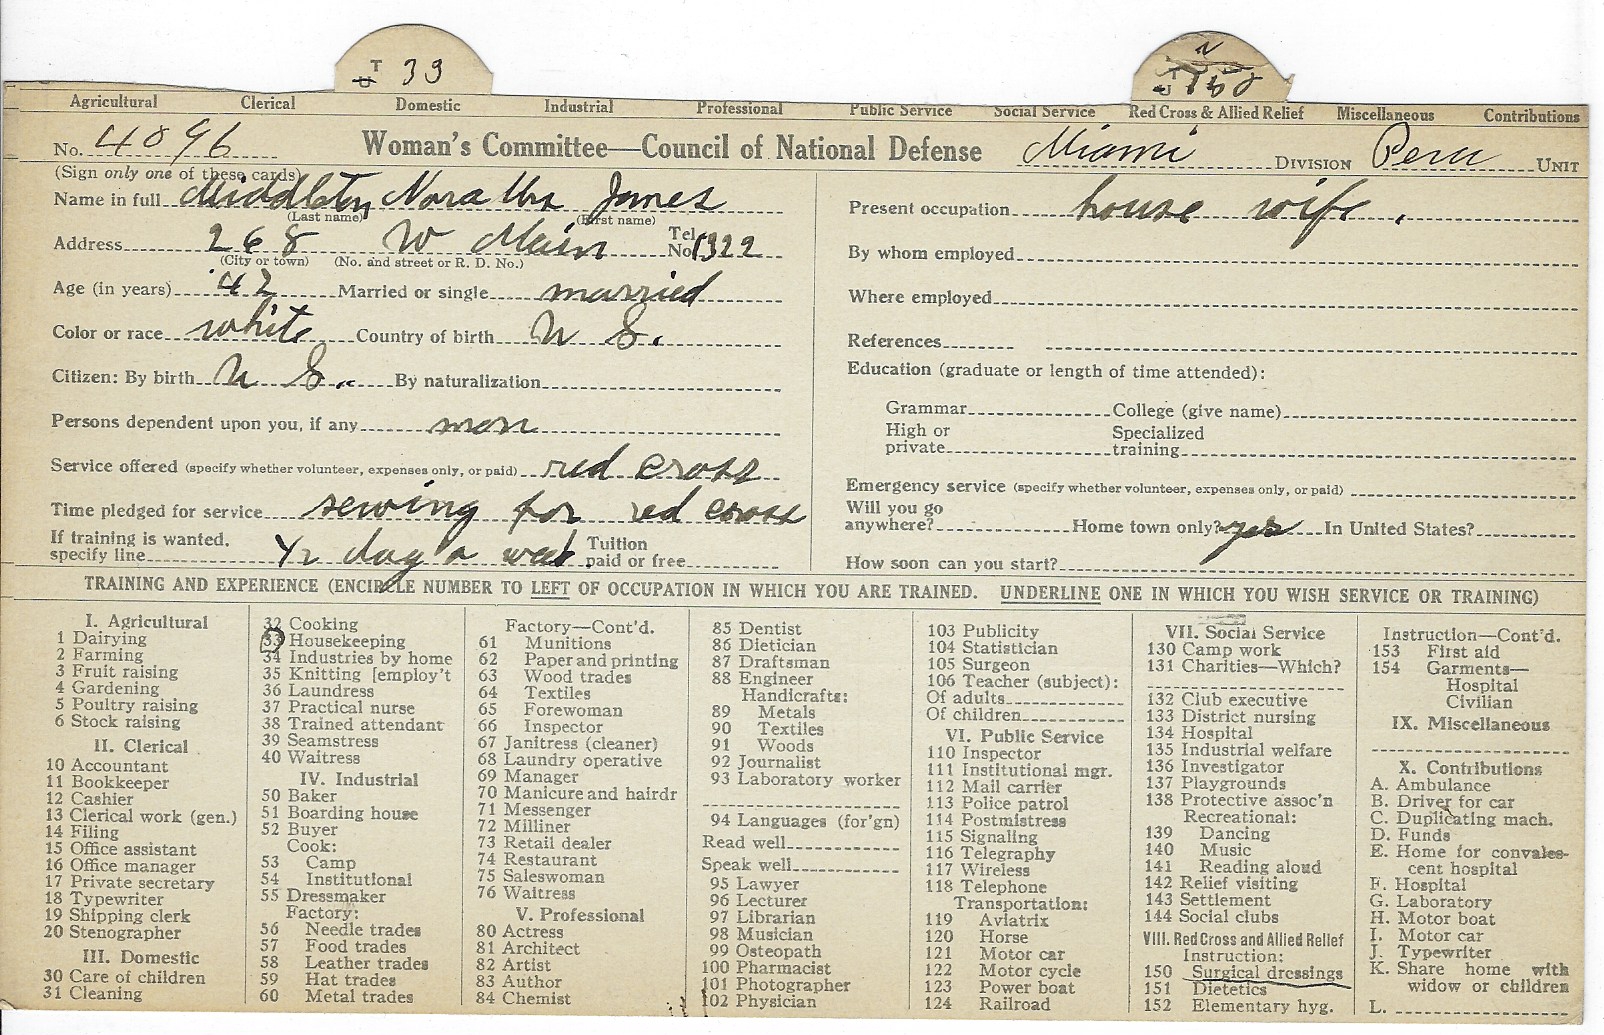 T 33
Agricultural Clerical Domestic Industrial Professional Public Service Social Service Red Cross & Allied Relief Miscellaneous Contributions
No. 4896 Woman's Committee—Council of National Defense Miami DIVISION Peru UNIT
(Sign only one of these cards)
Name in full Middleton Nora Mrs James
(Last name) (First name)
Address 268 W Main Tel. No. 1322
(City or town) (No. and street or R. D. No.)
Age (in years) 42 Married or single married
Color or race white Country of birth U S.
Citizen: By birth U S. By naturalization
Persons dependent upon you, if any non
Service offered (specify whether volunteer, expenses only, or paid) red cross
Time pledged for service sewing for red cross
If training is wanted, specify line 1/2 day a week Tuition paid or free
Present occupation house wife.
By whom employed
Where employed
References
Education (graduate or length of time attended):
Grammar College (give name)
High or private Specialized training
Emergency service (specify whether volunteer, expenses only, or paid)
Will you go anywhere? Home town only? yes In United States?
How soon can you start?
TRAINING AND EXPERIENCE (ENCIRCLE NUMBER TO LEFT OF OCCUPATION IN WHICH YOU ARE TRAINED. UNDERLINE ONE IN WHICH YOU WISH SERVICE OR TRAINING)
I. Agricultural
1 Dairying
2 Farming
3 Fruit raising
4 Gardening
5 Poultry raising
6 Stock raising
II. Clerical
10 Accountant
11 Bookkeeper
12 Cashier
13 Clerical work (gen.)
14 Filing
15 Office assistant
16 Office manager
17 Private secretary
18 Typewriter
19 Shipping clerk
20 Stenographer
III. Domestic
30 Care of children
31 Cleaning
32 Cooking
33 Housekeeping
34 Industries by home
35 Knitting [employ't
36 Laundress
37 Practical nurse
38 Trained attendant
39 Seamstress
40 Waitress
IV. Industrial
50 Baker
51 Boarding house
52 Buyer
Cook:
53 Camp
54 Institutional
55 Dressmaker
Factory:
56 Needle trades
57 Food trades
58 Leather trades
59 Hat trades
60 Metal trades
Factory—Cont'd.
61 Munitions
62 Paper and printing
63 Wood trades
64 Textiles
65 Forewoman
66 Inspector
67 Janitress (cleaner)
68 Laundry operative
69 Manager
70 Manicure and hairdr
71 Messenger
72 Milliner
73 Retail dealer
74 Restaurant
75 Saleswoman
76 Waitress
V. Professional
80 Actress
81 Architect
82 Artist
83 Author
84 Chemist
85 Dentist
86 Dietician
87 Draftsman
88 Engineer
Handicrafts:
89 Metals
90 Textiles
91 Woods
92 Journalist
93 Laboratory worker
94 Languages (for'gn)
Read well
Speak well
95 Lawyer
96 Lecturer
97 Librarian
98 Musician
99 Osteopath
100 Pharmacist
101 Photographer
102 Physician
103 Publicity
104 Statistician
105 Surgeon
106 Teacher (subject):
Of adults
Of children
VI. Public Service
110 Inspector
111 Institutional mgr.
112 Mail carrier
113 Police patrol
114 Postmistress
115 Signaling
116 Telegraphy
117 Wireless
118 Telephone
Transportation:
119 Aviatrix
120 Horse
121 Motor car
122 Motor cycle
123 Power boat
124 Railroad
VII. Social Service
130 Camp work
131 Charities—Which?
132 Club executive
133 District nursing
134 Hospital
135 Industrial welfare
136 Investigator
137 Playgrounds
138 Protective assoc'n
Recreational:
139 Dancing
140 Music
141 Reading aloud
142 Relief visiting
143 Settlement
144 Social clubs
VIII. Red Cross and Allied Relief
Instruction:
150 Surgical dressings
151 Dietetics
152 Elementary hyg.
Instruction—Cont'd.
153 First aid
154 Garments—
Hospital
Civilian
IX. Miscellaneous
X. Contributions
A. Ambulance
B. Driver for car
C. Duplicating mach.
D. Funds
E. Home for convales-
cent hospital
F. Hospital
G. Laboratory
H. Motor boat
I. Motor car
J. Typewriter
K. Share home with
widow or children
L.